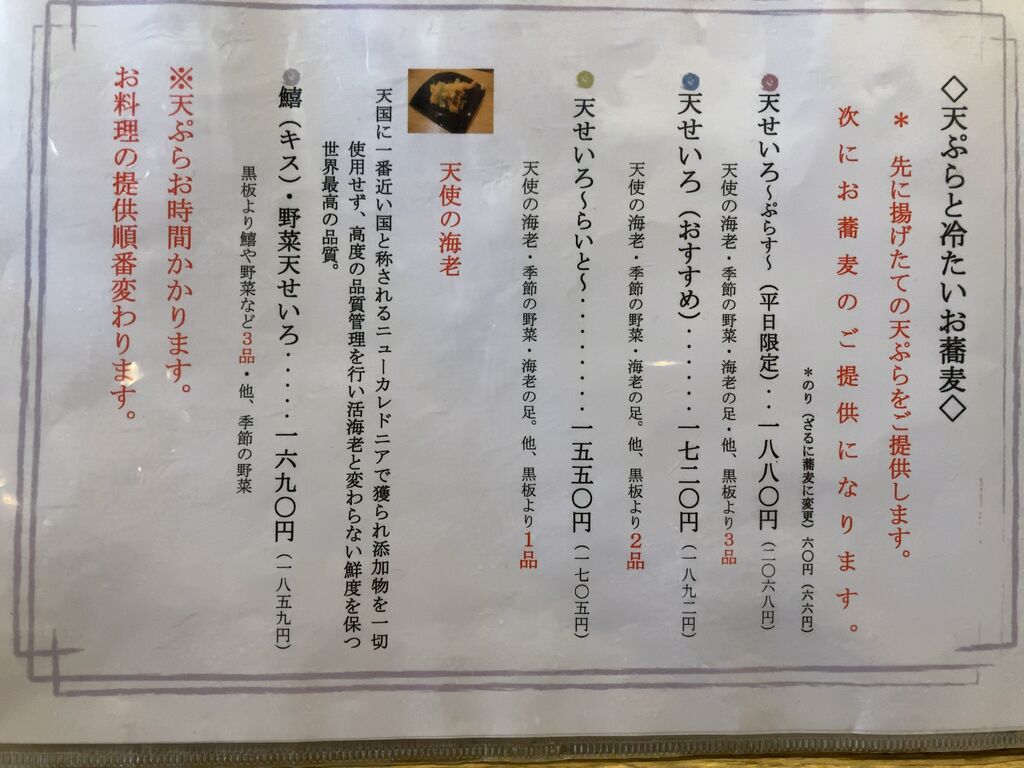 ◇天ぷらと冷たいお蕎麦◇
＊ 先に揚げたての天ぷらをご提供します。
次にお蕎麦のご提供になります。
＊のり（ざるに蕎麦に変更）六〇円（六六円）
天せいろ～ぷらす～（平日限定）・・一八八〇円（二〇六八円）
天使の海老・季節の野菜・海老の足・他、黒板より3品
天せいろ（おすすめ）・・・・・・一七二〇円（一八九二円）
天使の海老・季節の野菜・海老の足。他、黒板より2品
天せいろ～らいと～・・・・・・・・一五五〇円（一七〇五円）
天使の海老・季節の野菜・海老の足。他、黒板より1品
天使の海老
天国に一番近い国と称されるニューカレドニアで獲られ添加物を一切
使用せず、高度の品質管理を行い活海老と変わらない鮮度を保つ
世界最高の品質。
鱚（キス）・野菜天せいろ・・・・・一六九〇円（一八五九円）
黒板より鱚や野菜など3品・他、季節の野菜
※天ぷらお時間かかります。
お料理の提供順番変わります。